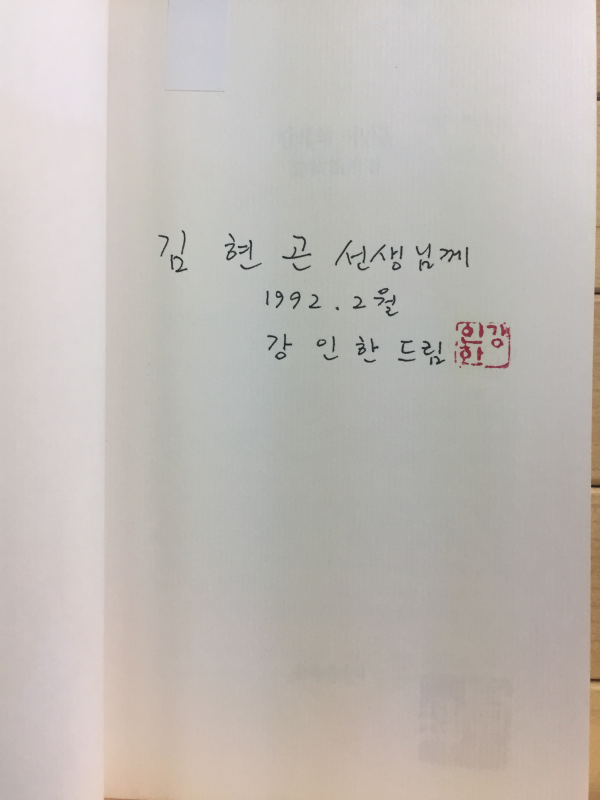 김 현 곤 선생님께
1992. 2월
강 인 한 드림
강인한